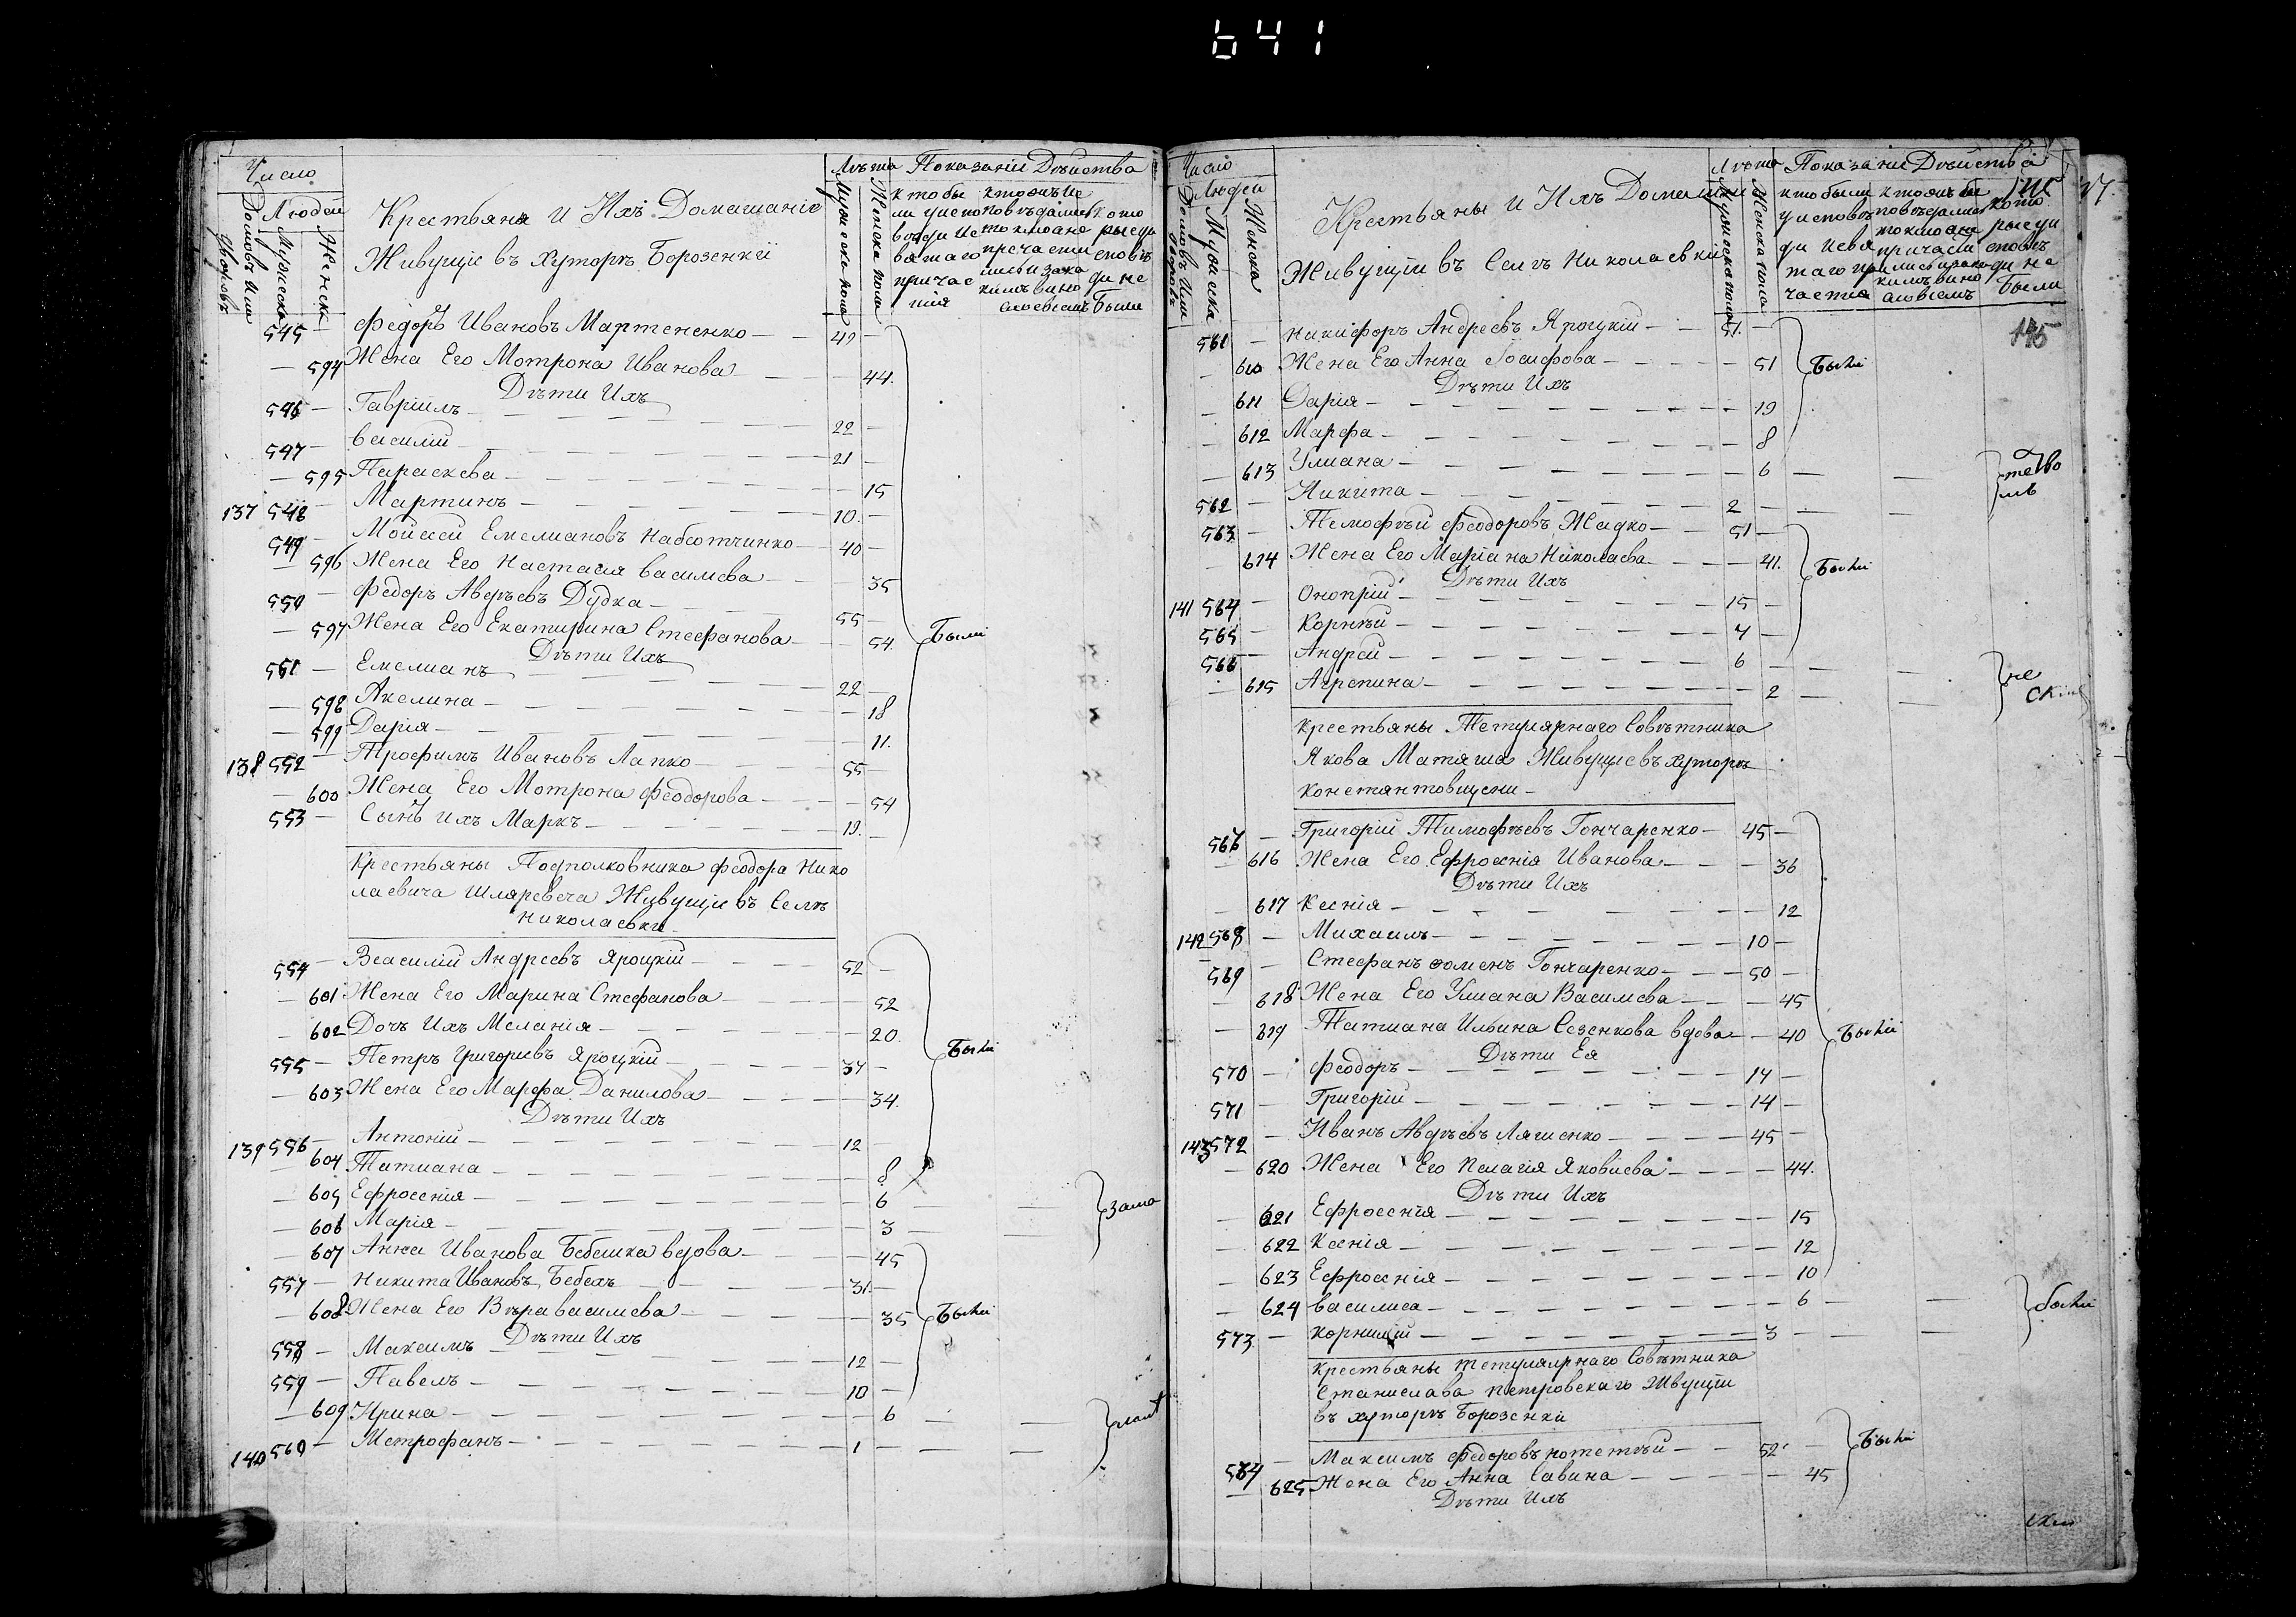 641
Число
Людей
Домовъ или дворовъ
Мужеска
Женск
Крестьяня и Ихъ Домашаніе
Живущіе въ Хуторѣ Борозенкѣ
Лѣта
Мужеска пола
Женска пола
Показаніи Дѣйства
545 — Федоръ Ивановъ Мартененко — 49 —
— 594 Жена Его Мотрона Иванова — 44.
Дѣти Ихъ
546 — Гавріилъ — 22 —
547 — василій — 21 —
— 595 Параскева — 15
137 548 — Мартинъ — 10. —
549 — Мойсей Емелиановъ Наботчинко — 40 —
— 596 Жена Его Настасія василева — 35
550 — Федоръ Авдѣевъ Дудка — 55 —
— 597 Жена Его Екатирина Стефанова — 54.
Были
Дѣти Ихъ
551 — Емелианъ — 22 —
— 598 Акелина — 18
— 599 Дарія — 11.
138 552 — Трофимъ Ивановъ Лапко — 55 —
— 600 Жена Его Мотрона Феодорова — 54
553 — Сынъ ихъ Маркъ — 19. —
Крестьяны Подполковника феодора Нико
лаевича Шляревеча Живущіе въ Селѣ
Николаевки
554 — Василій Андреевъ Яроцкій — 52 —
— 601 Жена Его Марина Стефанова — 52
— 602 Дочь Ихъ Меланія — 20.
555 — Петръ Григориевъ Яроцкій — 37 —
Были
— 603 Жена Его Марфа Данилова — 34.
Дѣти Ихъ
139 556 — Антоній — 12
— 604 Татиана — 8
— 605 Ефросенія — 6 —
— 606 Марія — 3 —
зама
— 607 Анна Иванова Бебешка вдова — 45
557 — Никита Ивановъ Бебехъ — 31. —
— 608 Жена Его Вѣра василева — 35
Были
Дѣти Ихъ
558 — Максимъ — 12 —
559 — Павелъ — 10 —
— 609 Ирина — 6 —
140 560 — Метрофанъ — 1 —
Число
Людей
Домовъ или дворовъ
Мужеска
Женска
Крестьяны и Ихъ Домашни
Живущіи въ Селѣ Николаевкі
Лѣта
Мужеска пола
Женска пола
Показаніе Дѣйства
145
561 — Никифоръ Андреевъ Яроцкій — 51. —
— 610 Жена Его Анна Іосифова — 51
Были
Дѣти Ихъ
— 611 Дарія — 19
— 612 Марфа — 8
— 613 Улиана — 6 —
562 — Никита — 2 —
563 — Темофѣй Феодоровъ Жадко — 51 —
— 614 Жена Его Маріана Николаева — 41.
Были
Дѣти Ихъ
141 564 — Оноприй — 15 —
565 — Корнѣй — 7 —
566 — Андрей — 6 —
— 615 Агрепина — 2 —
Крестьяны Тетулярнаго Совѣтника
Якова Матяша Живущіе въ хуторѣ
Константовщени —
567 — Григорій Тимофѣевъ Гончаренко — 45 —
— 616 Жена Его Ефросенія Иванова — 36
Дѣти Ихъ
— 617 Ксенія — 12
142 568 — Михаилъ — 10 —
569 — Стефанъ Фоменъ Гончаренко — 50 —
— 618 Жена Его Улиана Василева — 45
— 619 Татиана Ильина Сезенкова вдова — 40
Были
Дѣти Ея
570 — Феодоръ — 17 —
571 — Григорій — 14 —
143 572 — Иванъ Авдѣевъ Ляшенко — 45 —
— 620 Жена Его Пелагія Яковлева — 44.
Дѣти Ихъ
— 621 Ефросенія — 15
— 622 Ксенія — 12
— 623 Ефросенія — 10
— 624 василиса — 6 —
573 — Корнилій — 3 —
были
Крестьяны Тетулярнаго Совѣтника
Станислава Петровскаго Живущіи
въ хуторѣ Борозенкі
574 — Максимъ Федоровъ — 52 —
— 625 Жена Его Анна Савина — 45
Были
Дѣти Ихъ